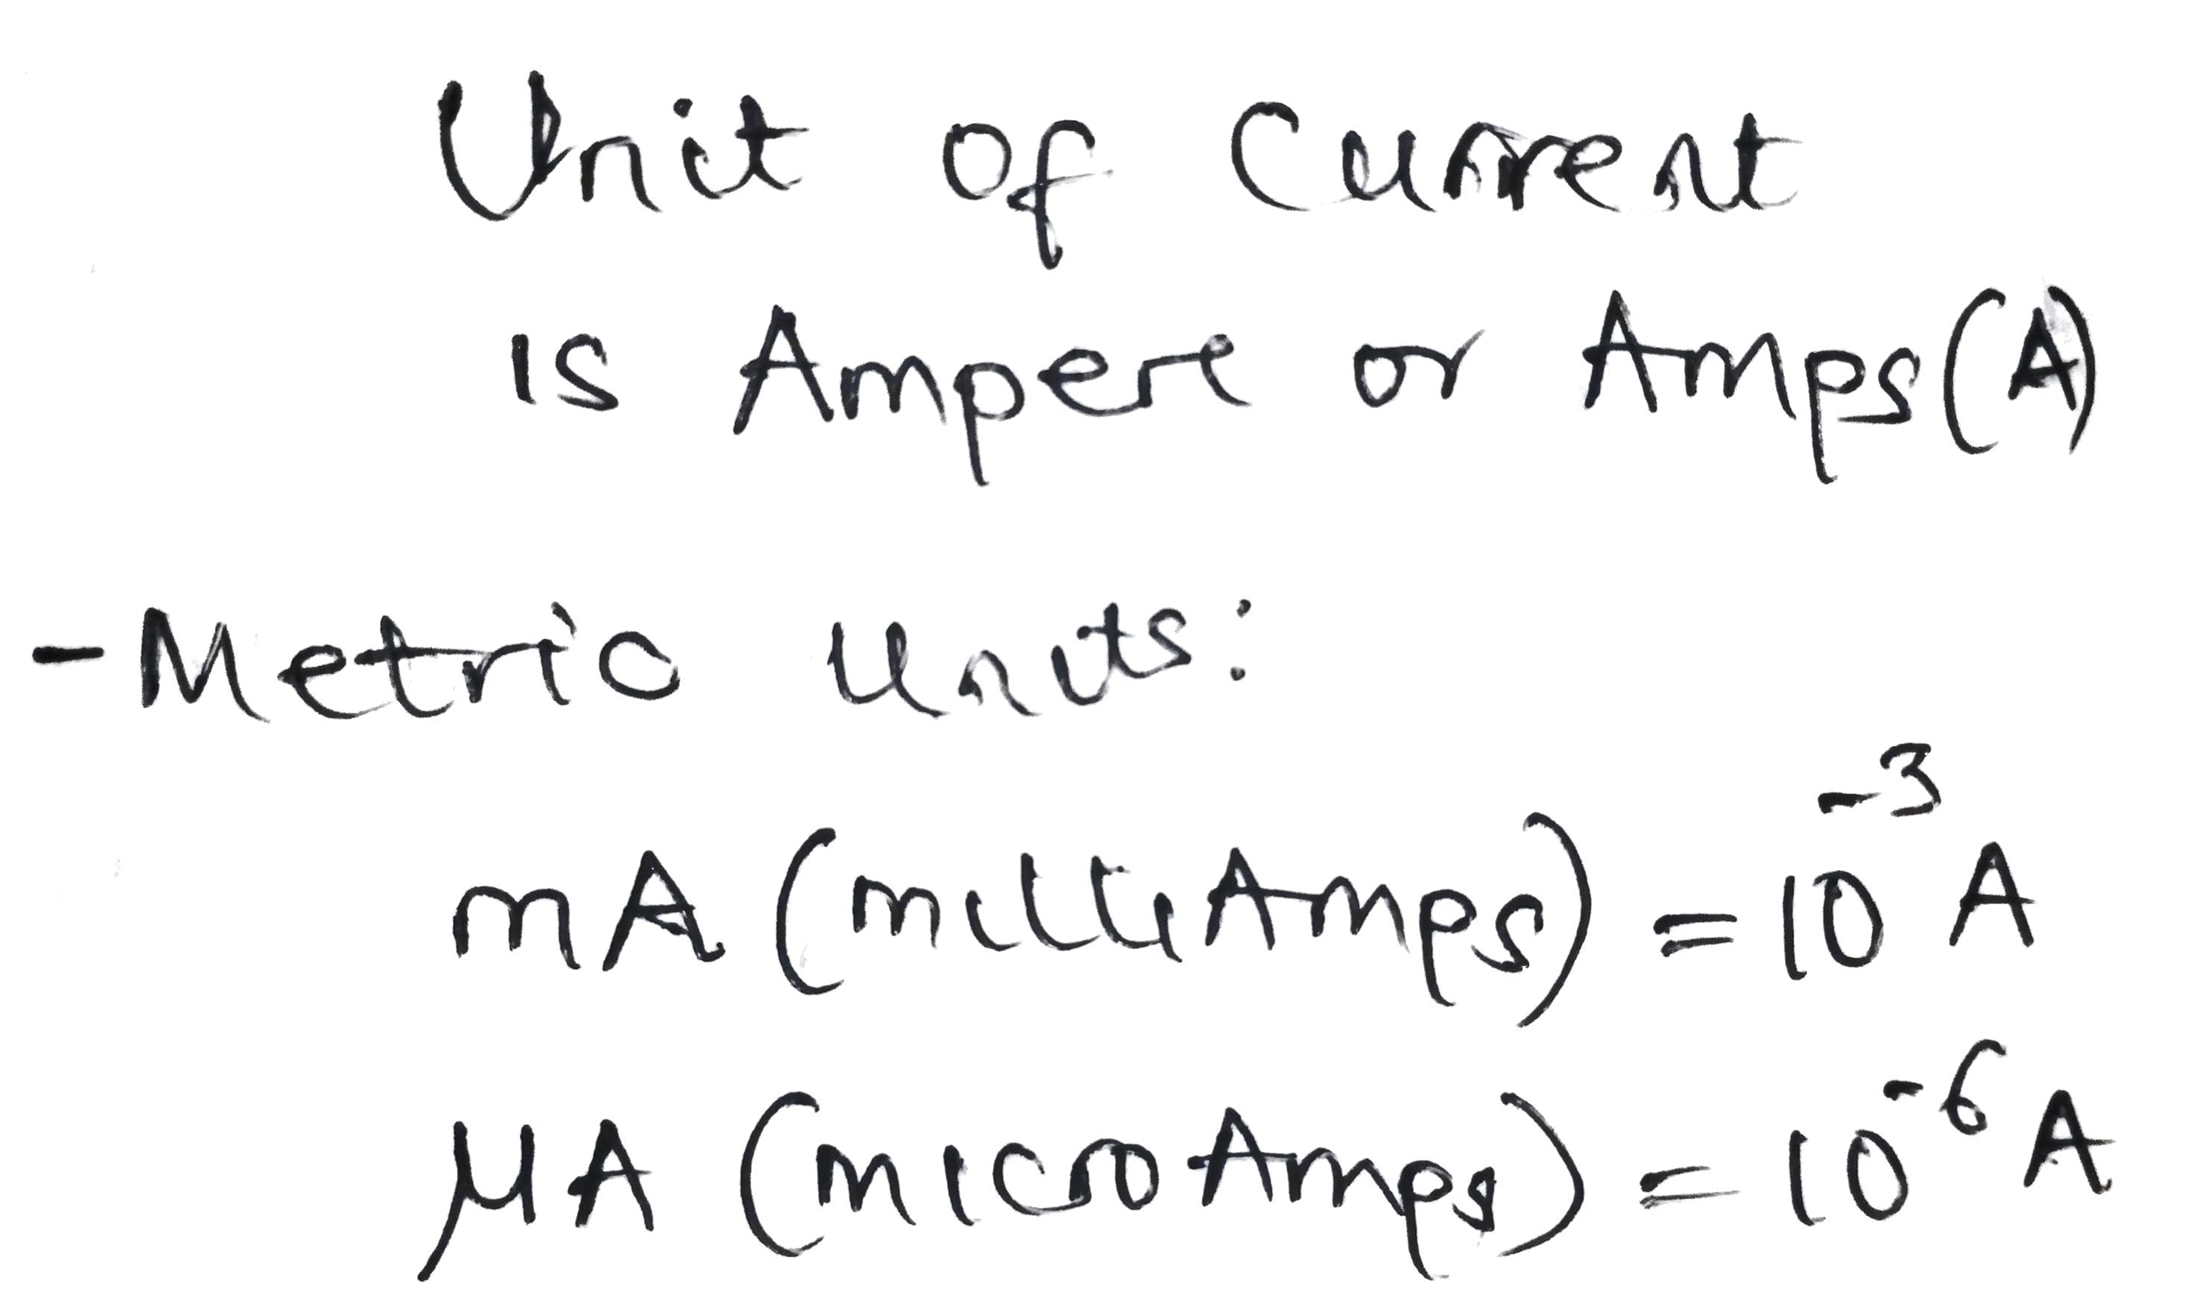 Unit of Current
is Ampere or Amps(A)
- Metric Units:
mA (milliAmps) = 10⁻³ A
μA (microAmps) = 10⁻⁶ A